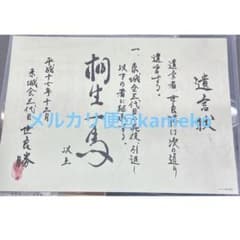 遺言状
遺言者 世良勝は次の通り
遺言する。
一、東城会三代目死後、引退し
以下の者に継承する。
桐生一馬
以上
平成十七年十二月
東城会三代目 世良勝
メルカリ便@kameka